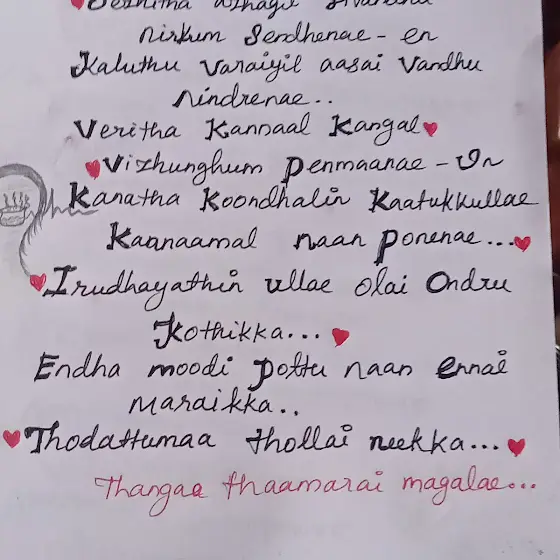 nirkum Serdhenae - en
Kaluthu varaiyil aasai vandhu
nindrenae..
Veritha Kannaal Kangal
Vizhunghum penmaanae - Un
Kanatha Koondhalin Kaatukkullae
Kaanaamal naan ponenae...
Irudhayathin ullae olai Ondru
Kothikka...
Endha moodi pottu naan ennai
maraikka..
Thodattumaa thollai neekka...
Thangaa thaamarai magalae...